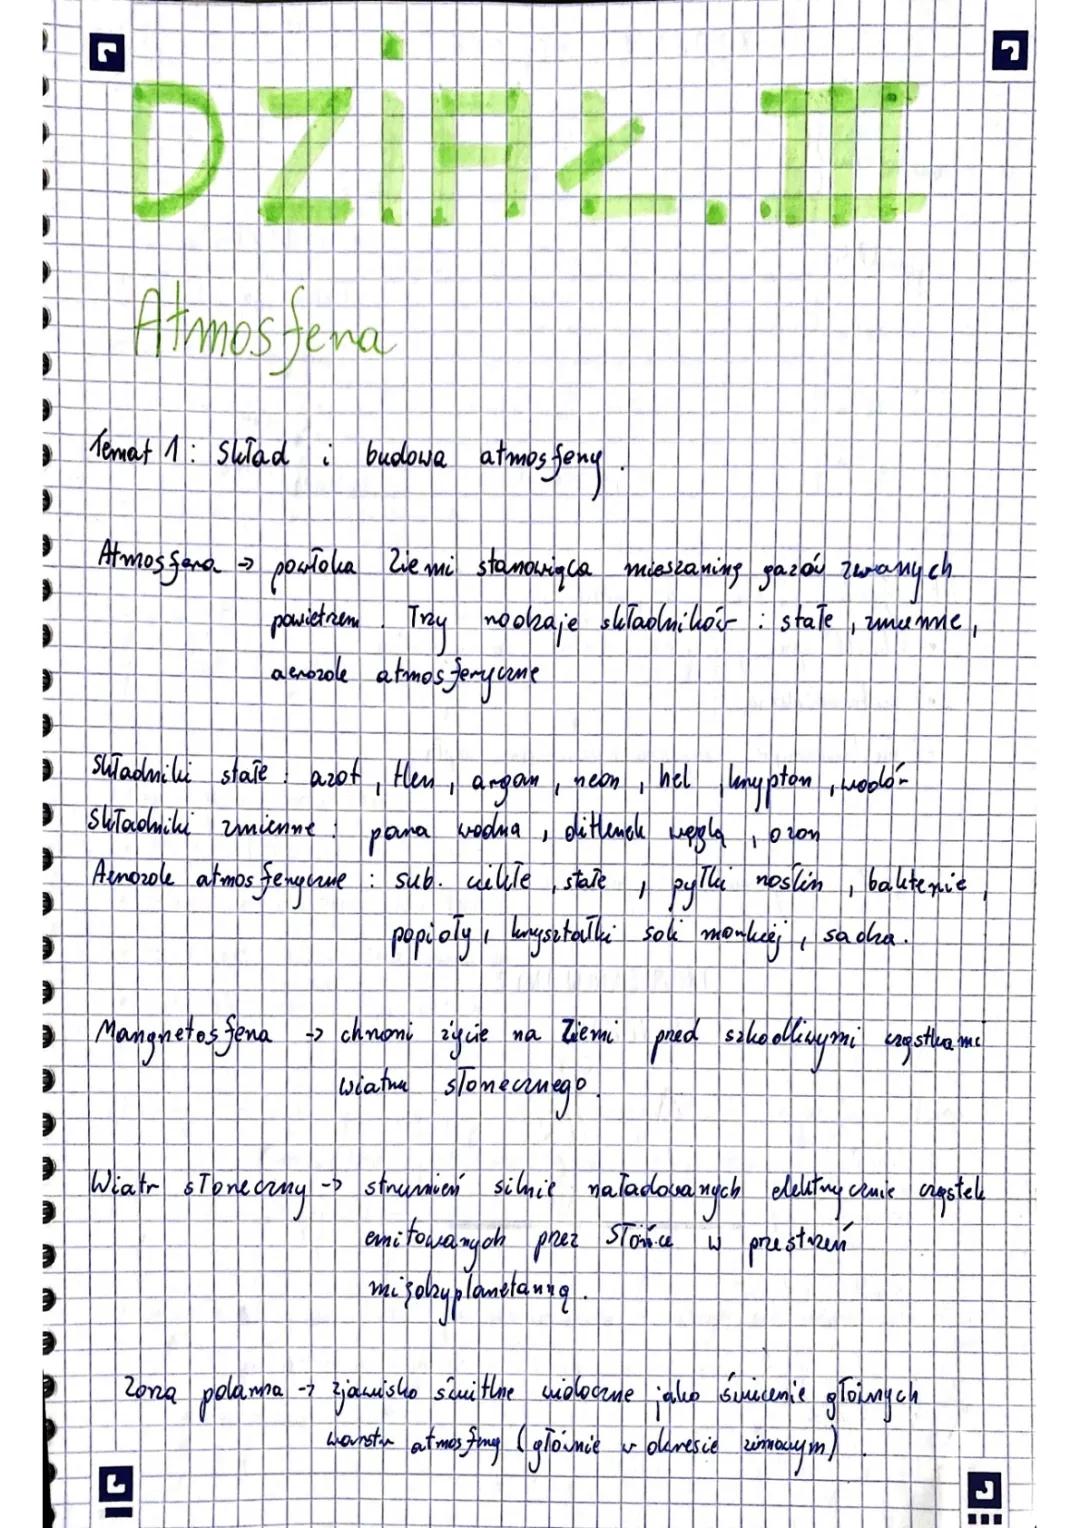 DZIAŁ. III
Atmosfera
Temat 1: Skład i budowa atmosfery.
Atmosfera → powłoka Ziemi stanowiąca mieszaninę gazów zwanych
powietrzem. Trzy rodzaje składników: stałe, zmienne,
aerozole atmosferyczne
Składniki stałe: azot, tlen, argon, neon, hel, krypton, wodór
Składniki zmienne: para wodna, ditlenek węgla, ozon
Aerozole atmosferyczne: sub. ciekłe, stałe, pyłki roślin, bakterie,
popioły, kryształki soli morskiej, sadza.
Mangnetosfera → chroni życie na Ziemi przed szkodliwymi cząstkami
wiatru słonecznego.
Wiatr słoneczny → strumień silnie naładowanych elektrycznie cząstek
emitowanych przez Słońce w przestrzeń
międzyplanetarną.
Zorza polarna → zjawisko świetlne widoczne jako świecenie górnych
warstw atmosfery (głównie w okresie zimowym).